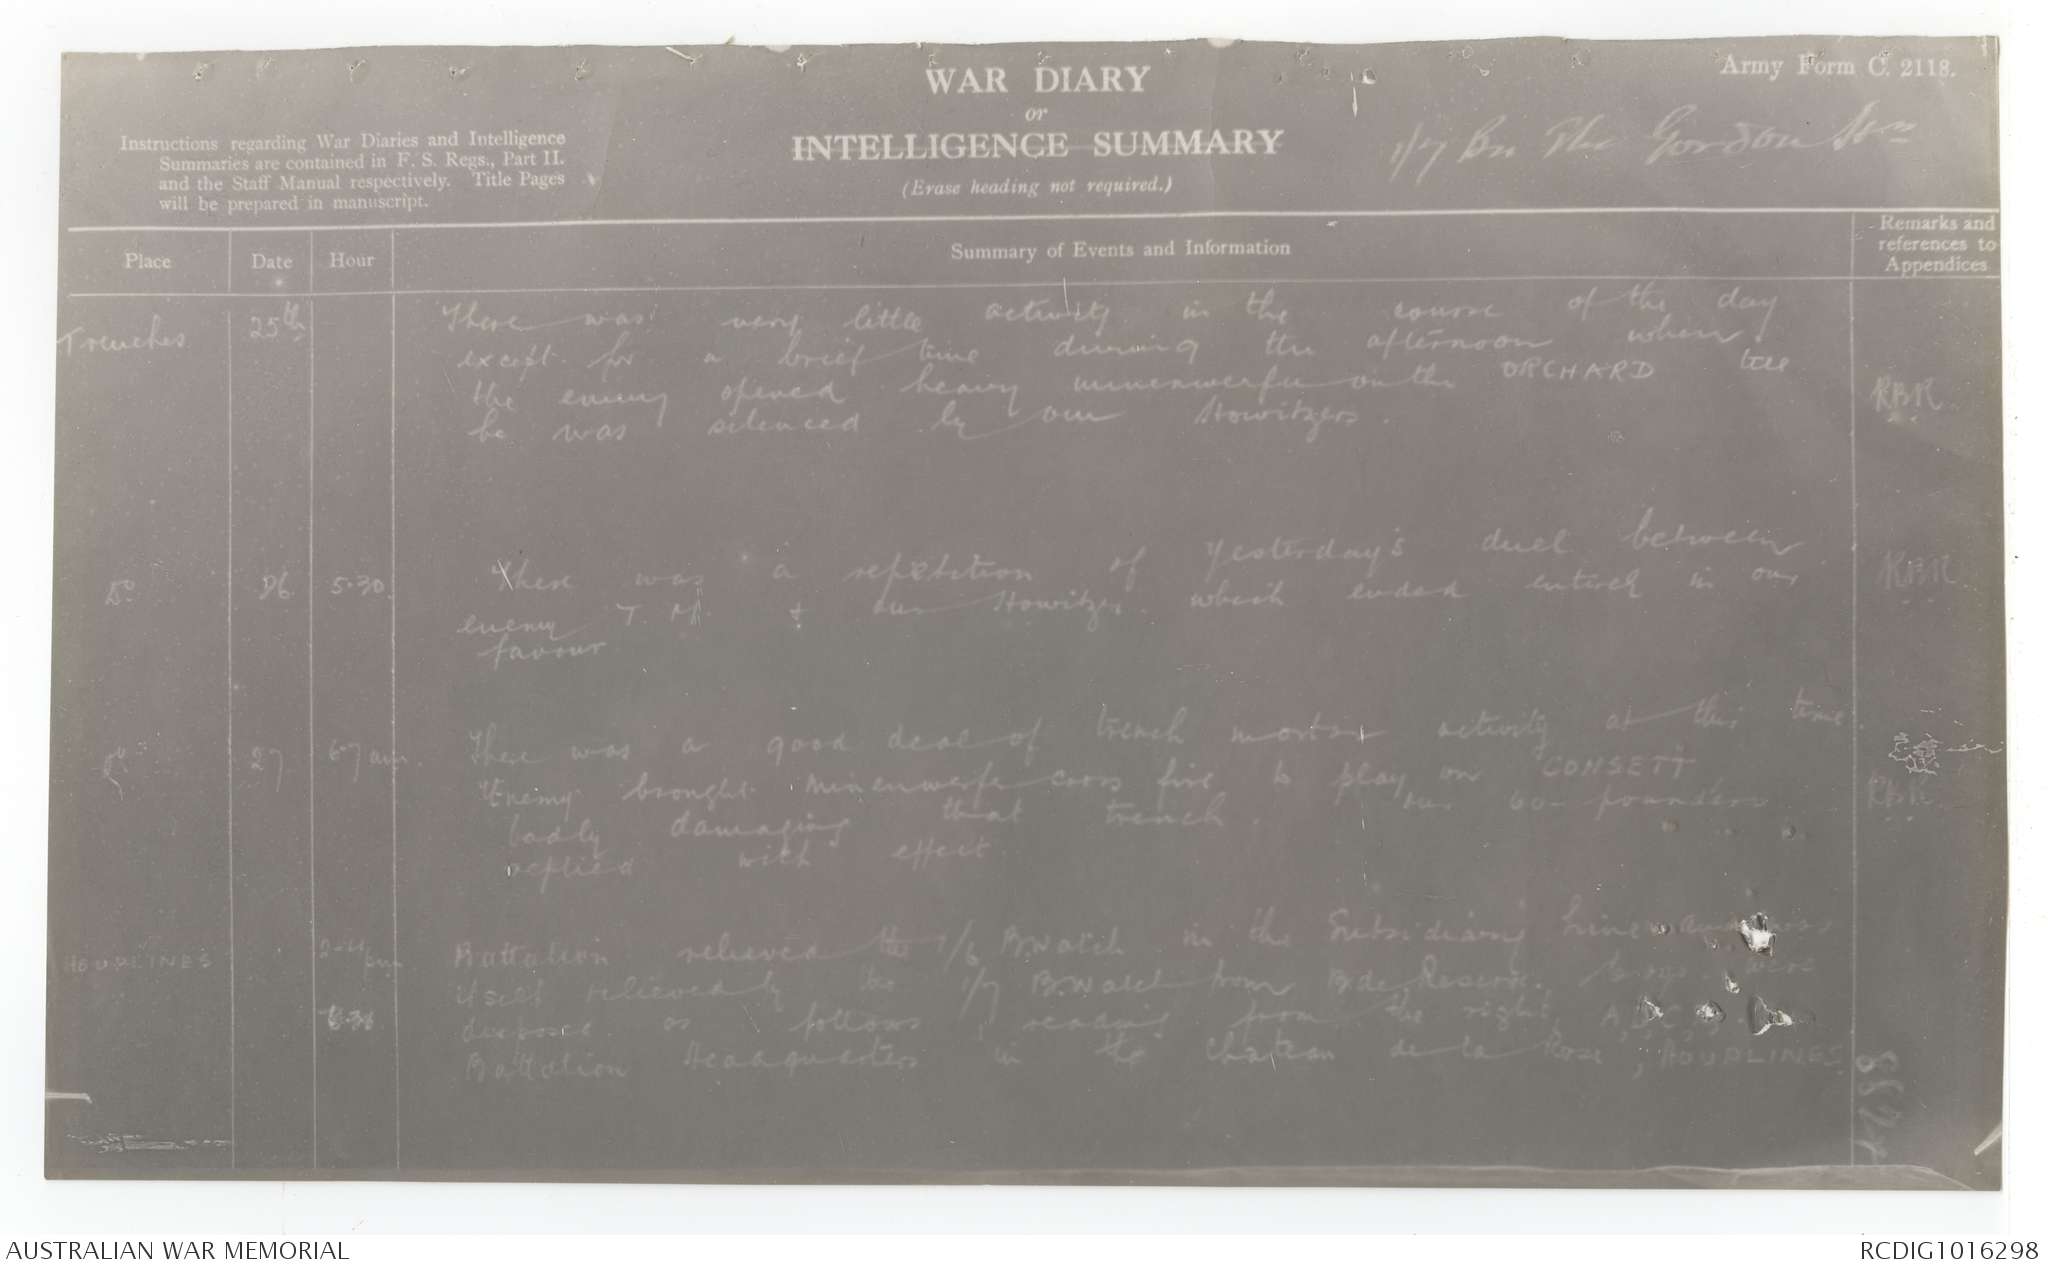 Army Form C. 2118.
WAR DIARY
or
INTELLIGENCE SUMMARY
(Erase heading not required.)
1/7 Bn The Gordon Hrs
Instructions regarding War Diaries and Intelligence
Summaries are contained in F. S. Regs., Part II.
and the Staff Manual respectively. Title Pages
will be prepared in manuscript.
Place Date Hour Summary of Events and Information Remarks and references to Appendices
Trenches 25th There was very little activity in the course of the day
except for a brief time during the afternoon when
the enemy opened heavy minenwerfer on the ORCHARD till
he was silenced by our Howitzers. RBR
Do 26 5.30 There was a repetition of yesterday's duel between
enemy T.M. & our Howitzer which ended entirely in our
favour. RBR
Do 27 6-7 am. There was a good deal of trench mortar activity at this time.
Enemy brought minenwerfer cross fire to play on CONSETT
badly damaging that trench. our 60-pounders
replied with effect RBR
HOUPLINES Battalion relieved the 1/6 B. Watch in the Subsidiary Line
itself relieved by the 1/7 B. Watch from Bde Reserve. were
disposed as follows, reading from the right, A,
Battalion Headquarters in the Chateau de la Rose, HOUPLINES
AUSTRALIAN WAR MEMORIAL
RCDIG1016298